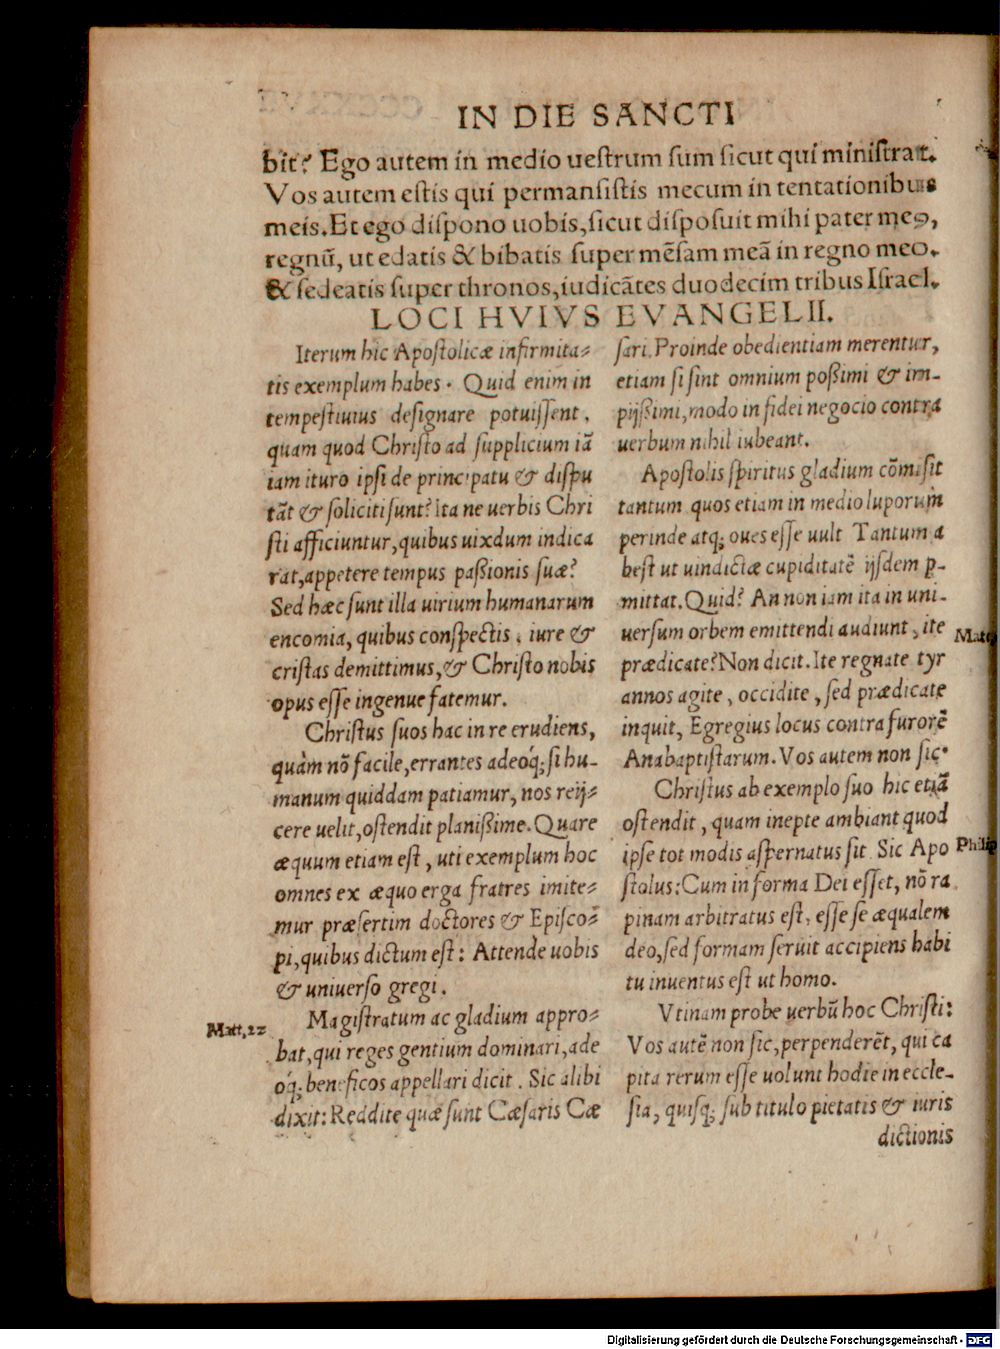 IN DIE SANCTI
bit? Ego autem in medio uestrum sum sicut qui ministrat.
Vos autem estis qui permansistis mecum in tentationibus
meis. Et ego dispono uobis, sicut disposuit mihi pater meꝰ,
regnũ, ut edatis & bibatis super mẽsam meã in regno meo.
& sedeatis super thronos, iudicãtes duodecim tribus Israel.
LOCI HVIVS EVANGELII.
Iterum hic Apostolicæ infirmita-
tis exemplum habes. Quid enim in
tempestiuius designare potuissent.
quam quod Christo ad supplicium iã
iam ituro ipsi de principatu & dispu
tãt & soliciti sunt? Ita ne uerbis Chri
sti afficiuntur, quibus uixdum indica
rat, appetere tempus passionis suæ?
Sed hæc sunt illa uirium humanarum
encomia, quibus conspectis, iure &
cristas demittimus, & Christo nobis
opus esse ingenue fatemur.
Christus suos hac in re erudiens,
quàm nõ facile, errantes adeóq; si hu-
manum quiddam patiamur, nos reij-
cere uelit, ostendit planissime. Quare
æquum etiam est, uti exemplum hoc
omnes ex æquo erga fratres imite-
mur præsertim doctores & Episco-
pi, quibus dictum est: Attende uobis
& uniuerso gregi.
Matt, 22
Magistratum ac gladium appro-
bat, qui reges gentium dominari, ade
óq; beneficos appellari dicit. Sic alibi
dixit: Reddite quæ sunt Cæsaris Cæ
sari. Proinde obedientiam merentur,
etiam si sint omnium possimi & im-
pijssimi, modo in fidei negocio contra
uerbum nihil iubeant.
Apostolis spiritus gladium cõmisit
tantum quos etiam in medio luporum
perinde atq; oues esse uult Tantum a
best ut uindictæ cupiditatẽ ijsdem p-
mittat. Quid? An non iam ita in uni-
uersum orbem emittendi audiunt, ite
Matt
prædicate? Non dicit. Ite regnate tyr
annos agite, occidite, sed prædicate
inquit, Egregius locus contra furorẽ
Anabaptistarum. Vos autem non sic.
Christus ab exemplo suo hic etiã
ostendit, quam inepte ambiant quod
ipse tot modis aspernatus sit. Sic Apo
Philip
stolus: Cum in forma Dei esset, nõ ra
pinam arbitratus est, esse se æqualem
deo, sed formam seruit accipiens habi
tu inuentus est ut homo.
Vtinam probe uerbũ hoc Christi:
Vos autẽ non sic, perpenderẽt, qui ca
pita rerum esse uolunt hodie in eccle-
sia, quisq; sub titulo pietatis & iuris
dictionis
Digitalisierung gefördert durch die Deutsche Forschungsgemeinschaft - DFG